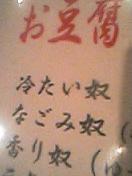 お豆腐
冷たい奴
なごみ奴（
香り奴（ゆ